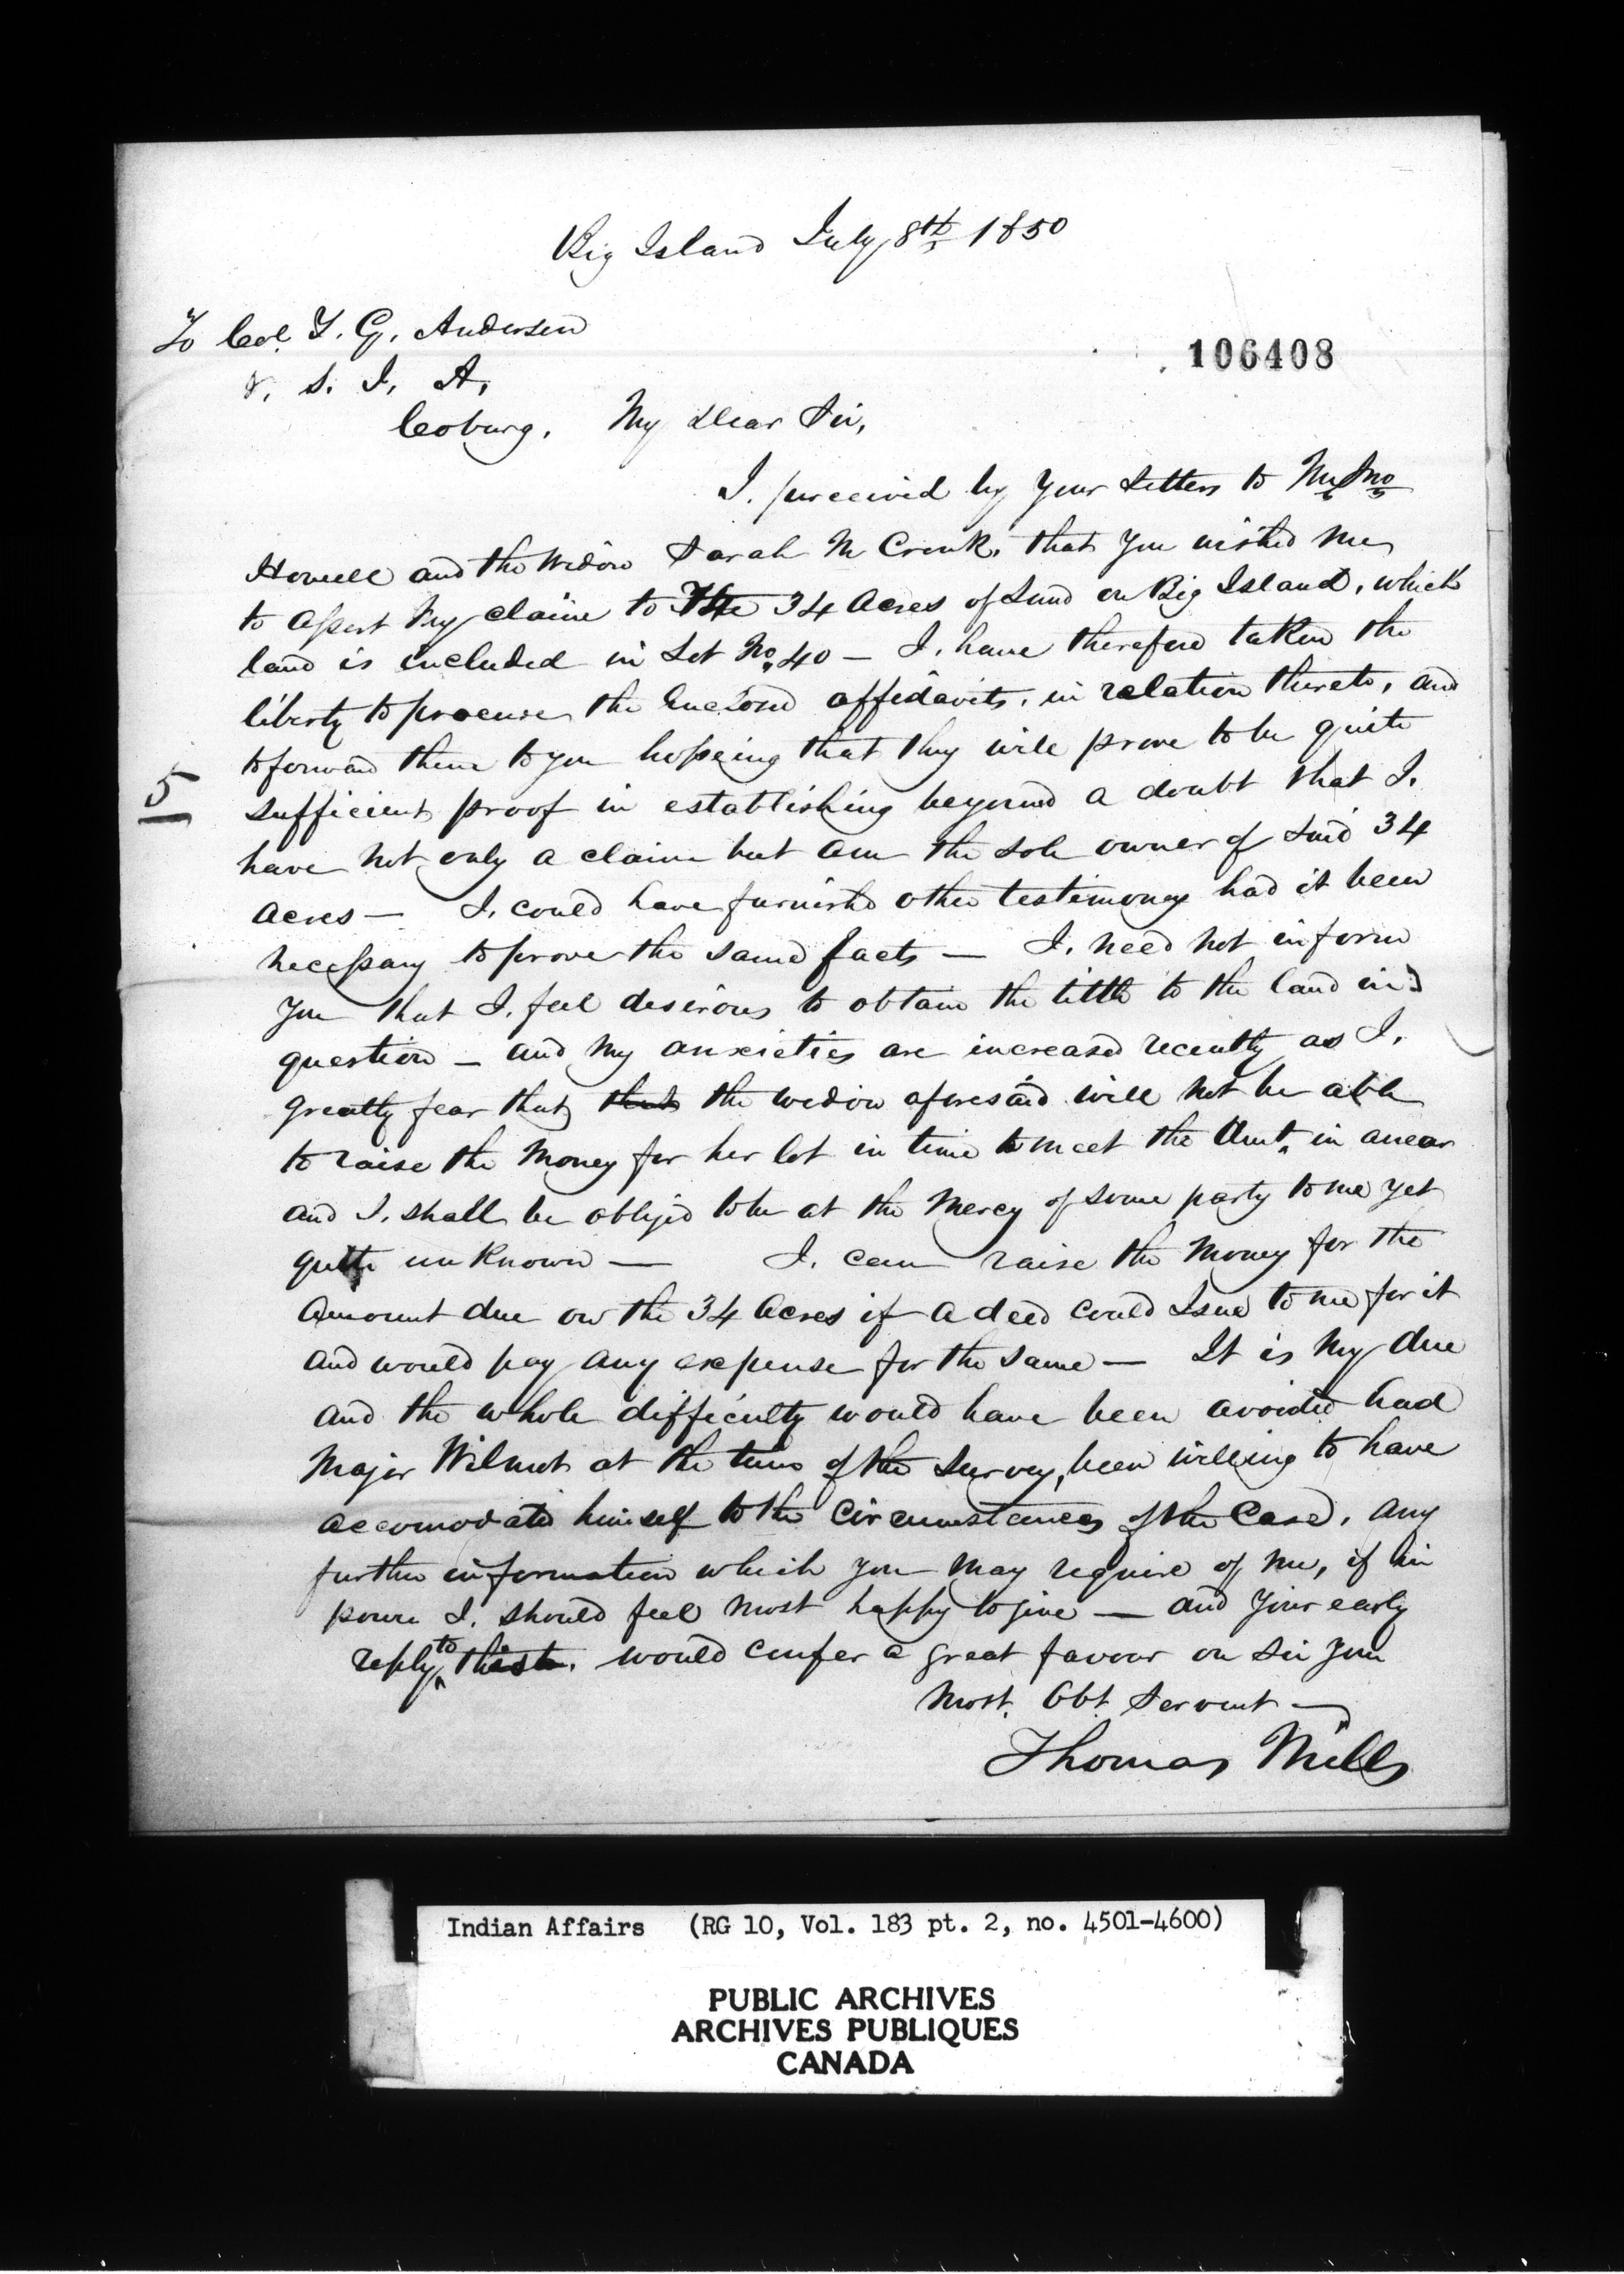 Big Island July 8th 1850
To Col. T. G. Anderson
V. S. I. A.
106408
Cobourg. My dear Sir,
I. perceived by your Letters to Mr Jno
Howell and the Widow Sarah M Cronk. that you wished me
to assert my claim to The 34 Acres of Land on Big Island, which
land is included in Lot No. 40 — I. have therefore taken the
liberty to procure the Enclosed affidavits, in relation thereto, and
to forward them to you hopeing that they will prove to be quite
15
sufficient proof in establishing beyound a doubt that I.
have not only a claim but am the sole owner of said 34
acres — I. could have furnished other testimony had it been
necessary to prove the same facts — I. need not inform
you that I. feel desirous to obtain the tittle to the land in
question — and my anxieties are increased recently as I.
greatly fear that that the widow aforesaid will not be able
to raise the money for her lot in time to meet the Amt. in arear
and I. shall be obliged to be at the mercy of some party to me yet
quite unknown — I. can raise the money for the
amount due on the 34 Acres if a deed could Issue to me for it
and would pay any expense for the same — It is my due
and the whole difficulty would have been avoided had
Major Wilmot at the time of the Survey, been willing to have
accomodated himself to the circumstances of the Case, any
further information which you may require of me, if in
power I. should feel most happy to give — and your early
reply to this. would confer a great favour on Sir your
Most. Obt. Servant —
Thomas Mills
Indian Affairs (RG 10, Vol. 183 pt. 2, no. 4501-4600)
PUBLIC ARCHIVES
ARCHIVES PUBLIQUES
CANADA